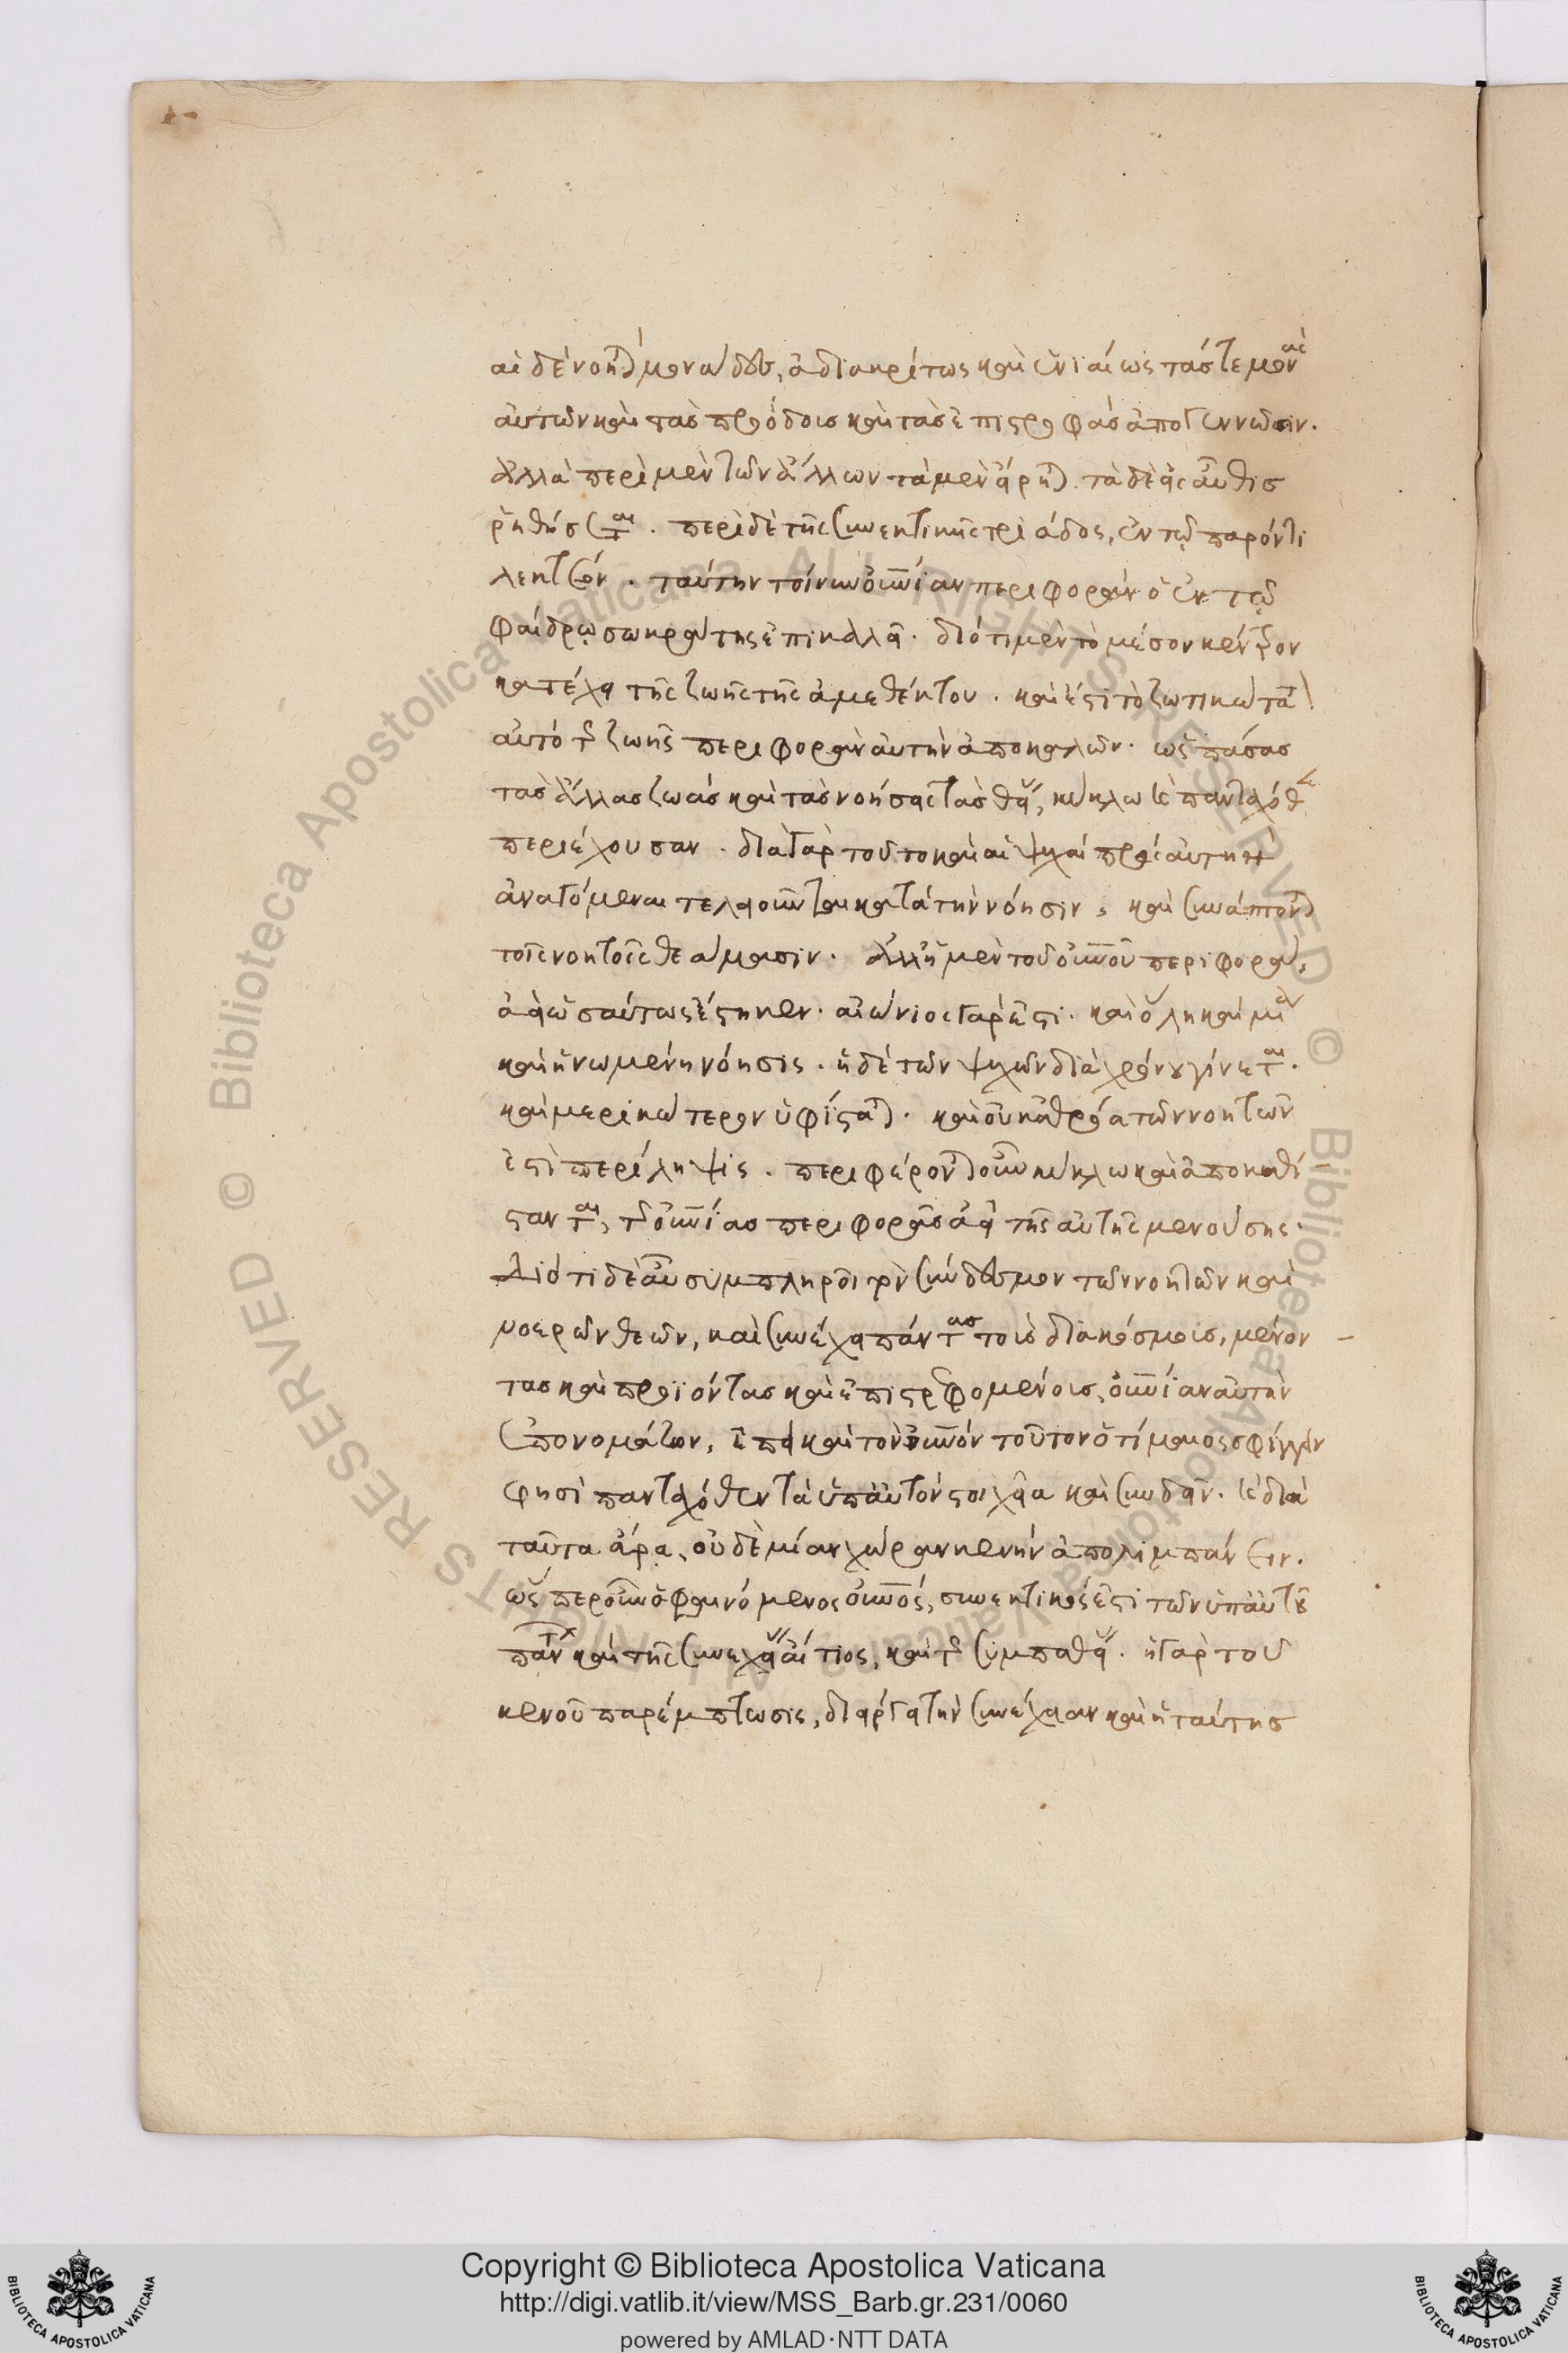 αἱ δὲ νοηταὶ μονάδες, ἀδιακρίτως καὶ ἑνιαίως τάς τε μονὰς
αὐτῶν καὶ τὰς προόδους καὶ τὰς ἐπιστροφὰς ἀπογεννῶσιν.
ἀλλὰ περὶ μὲν τῶν ἄλλων τὰ μὲν εἴρηται τὰ δὲ εἰσαῦθις
ῥηθήσεται. περὶ δὲ τῆς συνεκτικῆς τριάδος, ἐν τῷ παρόντι
λεκτέον. ταύτην τοίνυν οὐρανίαν περιφορὰν ὁ ἐν τῷ
Φαίδρῳ σωκράτης ἐπικαλεῖ. διότι μὲν τὸ μέσον κέντρον
κατέχει τῆς ζωῆς τῆς ἀμεθέκτου. καὶ ἔστι τὸ ζωτικώτατον
αὐτὸ τῆς ζωῆς περιφορὰν αὐτὴν ἀποκαλῶν. ὡς πάσας
τὰς ἄλλας ζωὰς καὶ τὰς νοήσεις τὰς θείας, κύκλῳ καὶ πανταχόθεν
περιέχουσαν. διὰ γὰρ τοῦτο καὶ αἱ ψυχαὶ πρὸς αὐτὴν
ἀναγόμεναι τελειοῦνται κατὰ τὴν νόησιν, καὶ συνάπτονται
τοῖς νοητοῖς θεάμασιν. ἀλλ' ἡ μὲν τοῦ οὐρανοῦ περιφορά,
ἀεὶ ὡσαύτως ἕστηκεν. αἰώνιος γάρ ἐστι. καὶ ὅλη καὶ μία
καὶ ἡνωμένη νόησις. ἡ δὲ τῶν ψυχῶν διὰ χρόνου γίνεται.
καὶ μερικώτερον ὑφίσταται. καὶ οὐκ ἀθρόα τῶν νοητῶν
ἐστὶ περίληψις. περιφέρονται οὖν κύκλῳ καὶ ἀποκαθί-
στανται, τῆς οὐρανίας περιφορᾶς ἀεὶ τῆς αὐτῆς μενούσης.
Διότι δὲ αὖ συμπληροῖ τὸν σύνδεσμον τῶν νοητῶν καὶ
νοερῶν θεῶν, καὶ συνέχει πάντας τοὺς διακόσμους, μένον-
τας καὶ προϊόντας καὶ ἐπιστρεφομένους, οὐρανίαν αὐτὴν
ἐπονομάζων, ἐπεὶ καὶ τὸν οὐρανὸν τοῦτον ὁ τίμαιος σφίγγειν
φησὶ πανταχόθεν τὰ ὑπ' αὐτὸν στοιχεῖα καὶ συνδεῖν. καὶ διὰ
ταῦτα ἄρα, οὐδὲ μίαν χώραν κενὴν ἀπολιμπάνειν.
ὥσπερ οὖν ὁ φαινόμενος οὐρανός, συνεκτικός ἐστι τῶν ὑπ' αὐτοῦ
πάντων καὶ τῆς συνεχείας αἴτιος, καὶ τῆς συμπαθείας. ἡ γὰρ τοῦ
κενοῦ παρέμπτωσις, διαιρεῖ τὴν συνέχειαν καὶ ἡ ταύτης
Copyright © Biblioteca Apostolica Vaticana
http://digi.vatlib.it/view/MSS_Barb.gr.231/0060
powered by AMLAD·NTT DATA